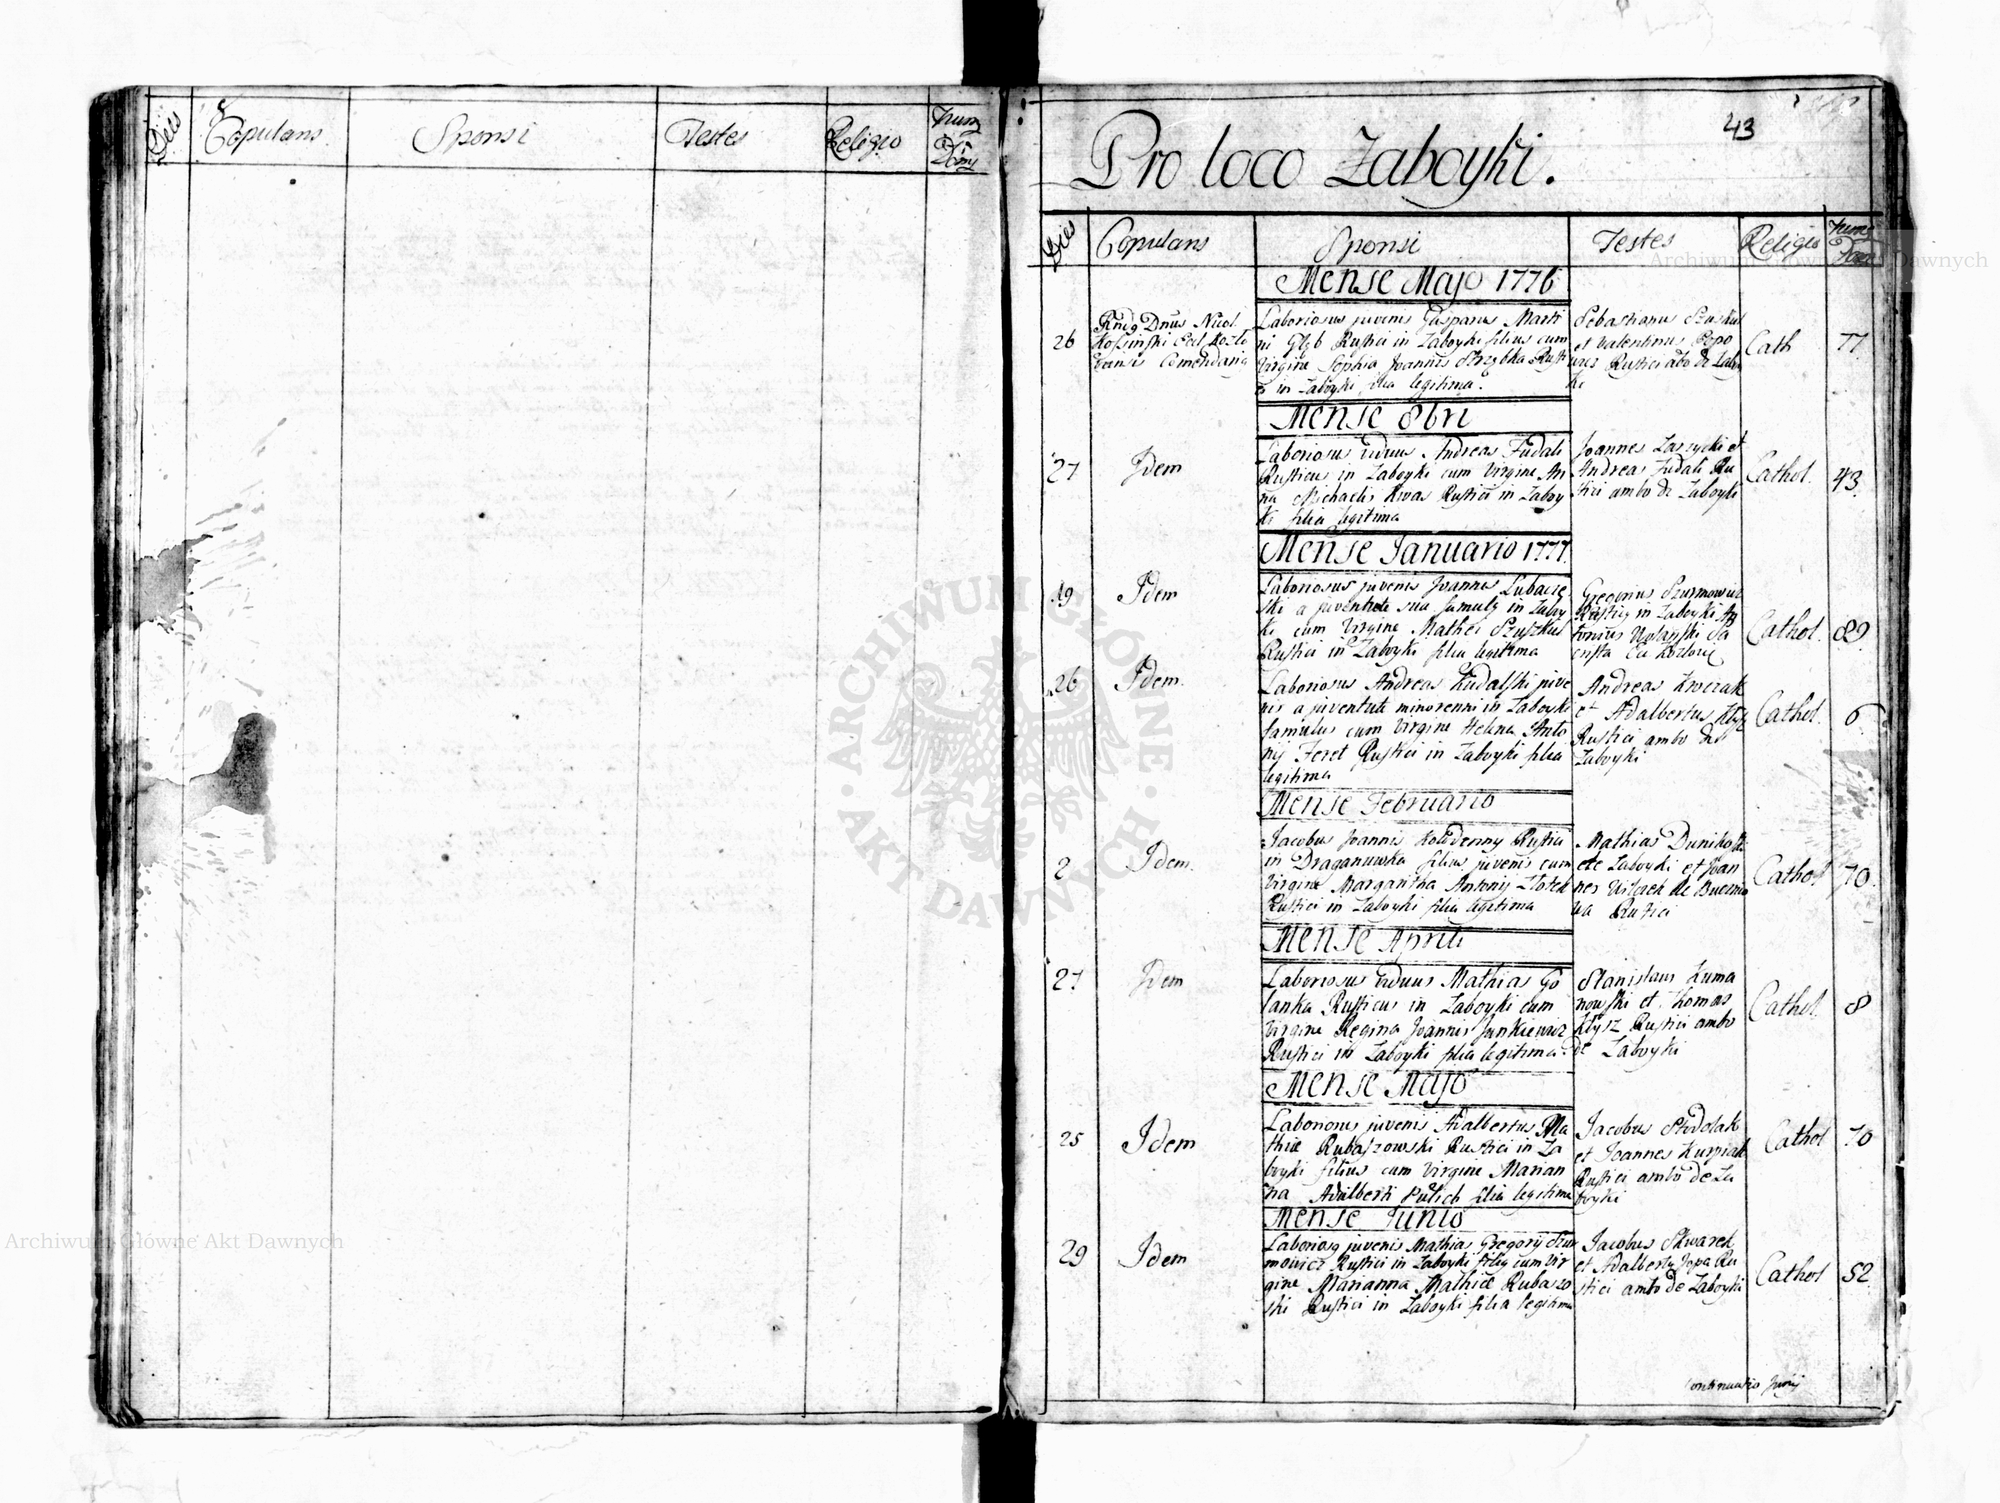 Dies
Copulans
Sponsi
Testes
Religio
Num
Dom
43
Pro loco Zaboyki.
Dies
Copulans
Sponsi
Testes
Religio
Num
Mense Majo 1776
26
Rndq Dnus Nicol.
Kossinski Ecl. Kozlo
viensis Comendariq
Laboriosus juvenis Gasparus Marti
ni Glyb Rustici in Zaboyki filius cum
Virgine Sophia Joannis Skrzybka Rusti
ci in Zaboyki filia legitima.
Sebastianus
et Valentinus Popo
wicz Rustici abo de Zaboy
ki
Cath
77
Mense 8bri
27
Idem
Laboriosus viduus Andreas Fudali
Rusticus in Zaboyki cum Virgine An
na Michaelis Kwas Rustici in Zaboy
ki filia legitima
Joannes Zarycki et
Andreas Fudali Ru
stici ambo de Zaboyki
Cathol.
43.
Mense Januario 1777.
19
Idem
Laboriosus juvenis Joannes
ski a juventute sua famulq in Zaboy
ki cum Virgine Mathei Szuszkul
Rustici in Zaboyki filia legitima
Gregorius Szurmowicz
Rusticq in Zaboyki An
tonius
Cathol.
89.
26
Idem.
Laboriosus Andreas Kudalski juve
nis a juventute minorenni in Zaboyki
famulus cum Virgine Helena Anto
nij Feret Rustici in Zaboyki filia
legitima
Andreas
et Adalbertus
Rustici ambo de
Zaboyki
Cathol.
6
Mense Februario
2
Idem.
Jacobus Joannis Kolodenny Rustici
in Draganuwka filius juvenis cum
Virgine Margaritha Antonij
Rustici in Zaboyki filia legitima
Mathias
de Zaboyki et Joan
nes
wa Rustici
Cathol
70.
Mense Aprili
27
Idem
Laboriosus viduus Mathias Go
lanka Rusticus in Zaboyki cum
Virgine Regina Joannis Junkiewicz
Rustici in Zaboyki filia legitima
Stanislaus Kuma
nowski et Thomas
Klysz Rustici ambo
de Zaboyki
Cathol.
8
Mense Majo
25
Idem
Laboriosus juvenis Adalbertus Ma
thiæ Rubaszowski Rustici in Za
boyki filius cum Virgine Marian
na Adalberti Pulich filia legitima
Jacobus Stodolak
et Joannes Kurpiak
Rustici ambo de Za
boyki
Cathol
70
Mense Junio
29
Idem
Laboriosq juvenis Mathias Gregorij Szur
mowicz Rustici in Zaboyki filiq cum Vir
gine Marianna Mathiæ Rubaszo
ski Rustici in Zaboyki filia legitima
Jacobus Skwarek
et Adalbertq Popa Ru
stici ambo de Zaboyki
Cathol
52
Continuatio Junij
ARCHIWUM GŁÓWNE AKT DAWNYCH
Archiwum Główne Akt Dawnych
Archiwum Główne Akt Dawnych